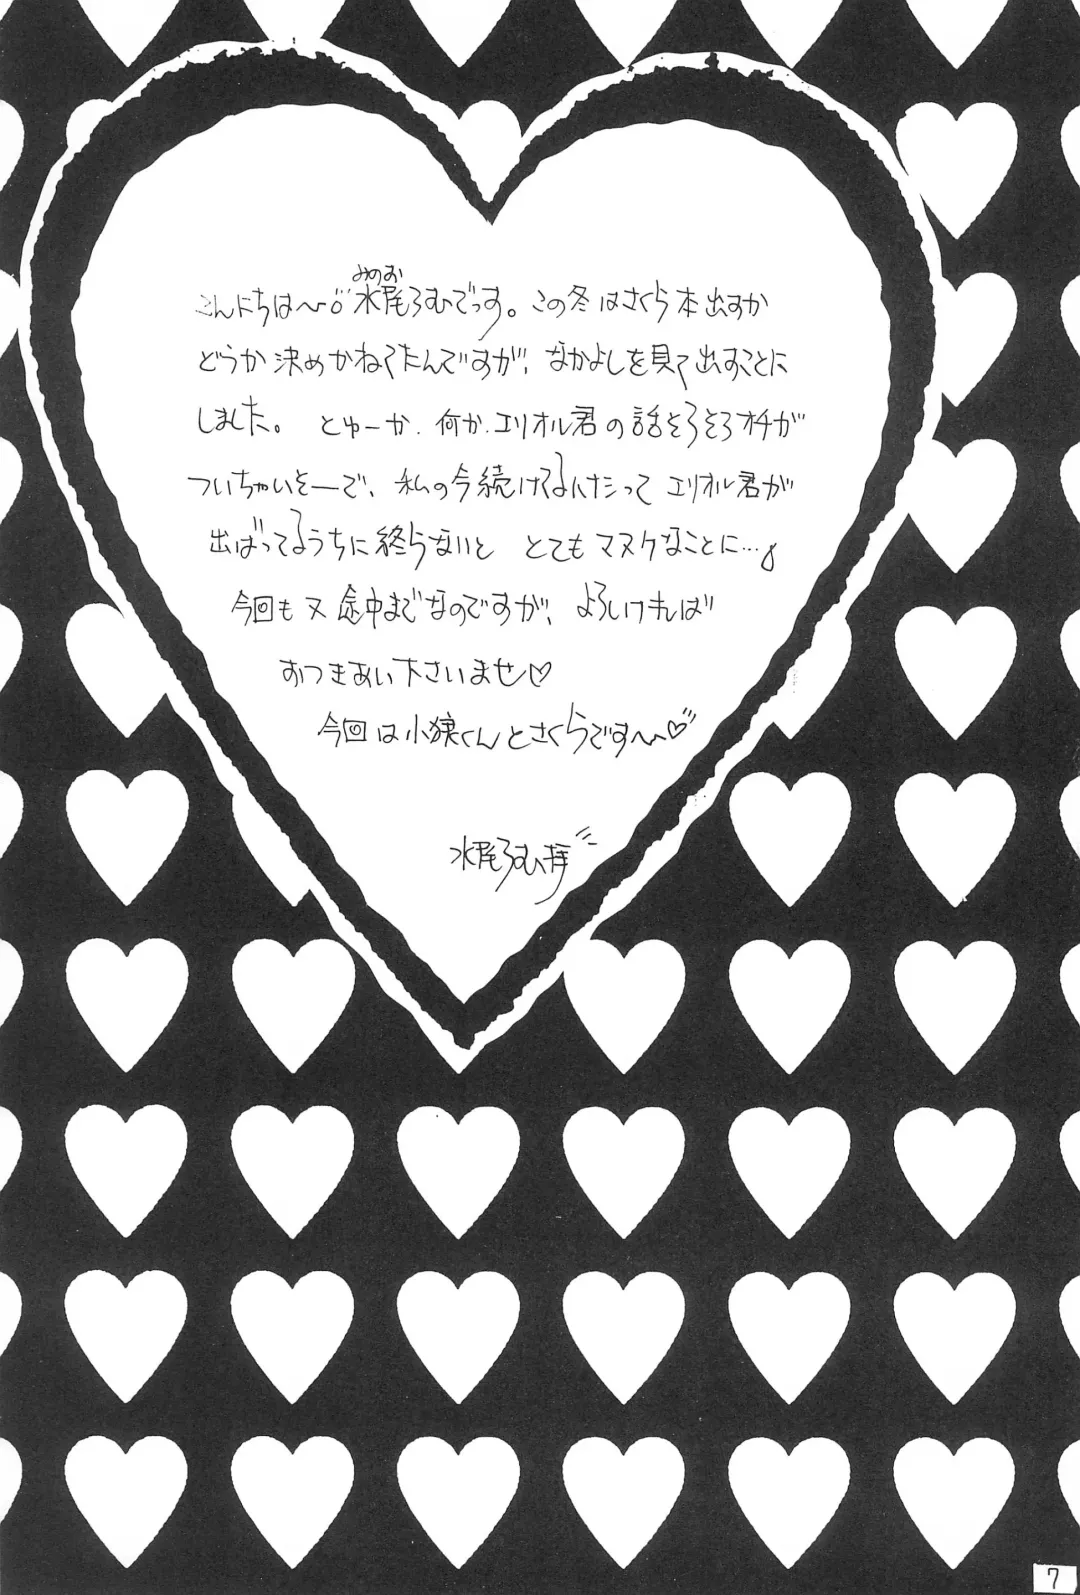 こんにちは〜♡水尾ろむでっす。この冬はさくら本出すか
みのお
どうか決めかねてたんですが、なかよしを見て出すことに
しました。とゆーか、何か、エリオル君の話そろそろオチが
ついちゃいそーで、私の今続けてるんけシって エリオル君が
出ばってるうちに終らないと とてもマヌケなことに…
今回も又途中までなのですが、よろしければ
おつきあい下さいませ♡
今回は小狼くんとさくらです〜♡
水尾ろむ拝
7